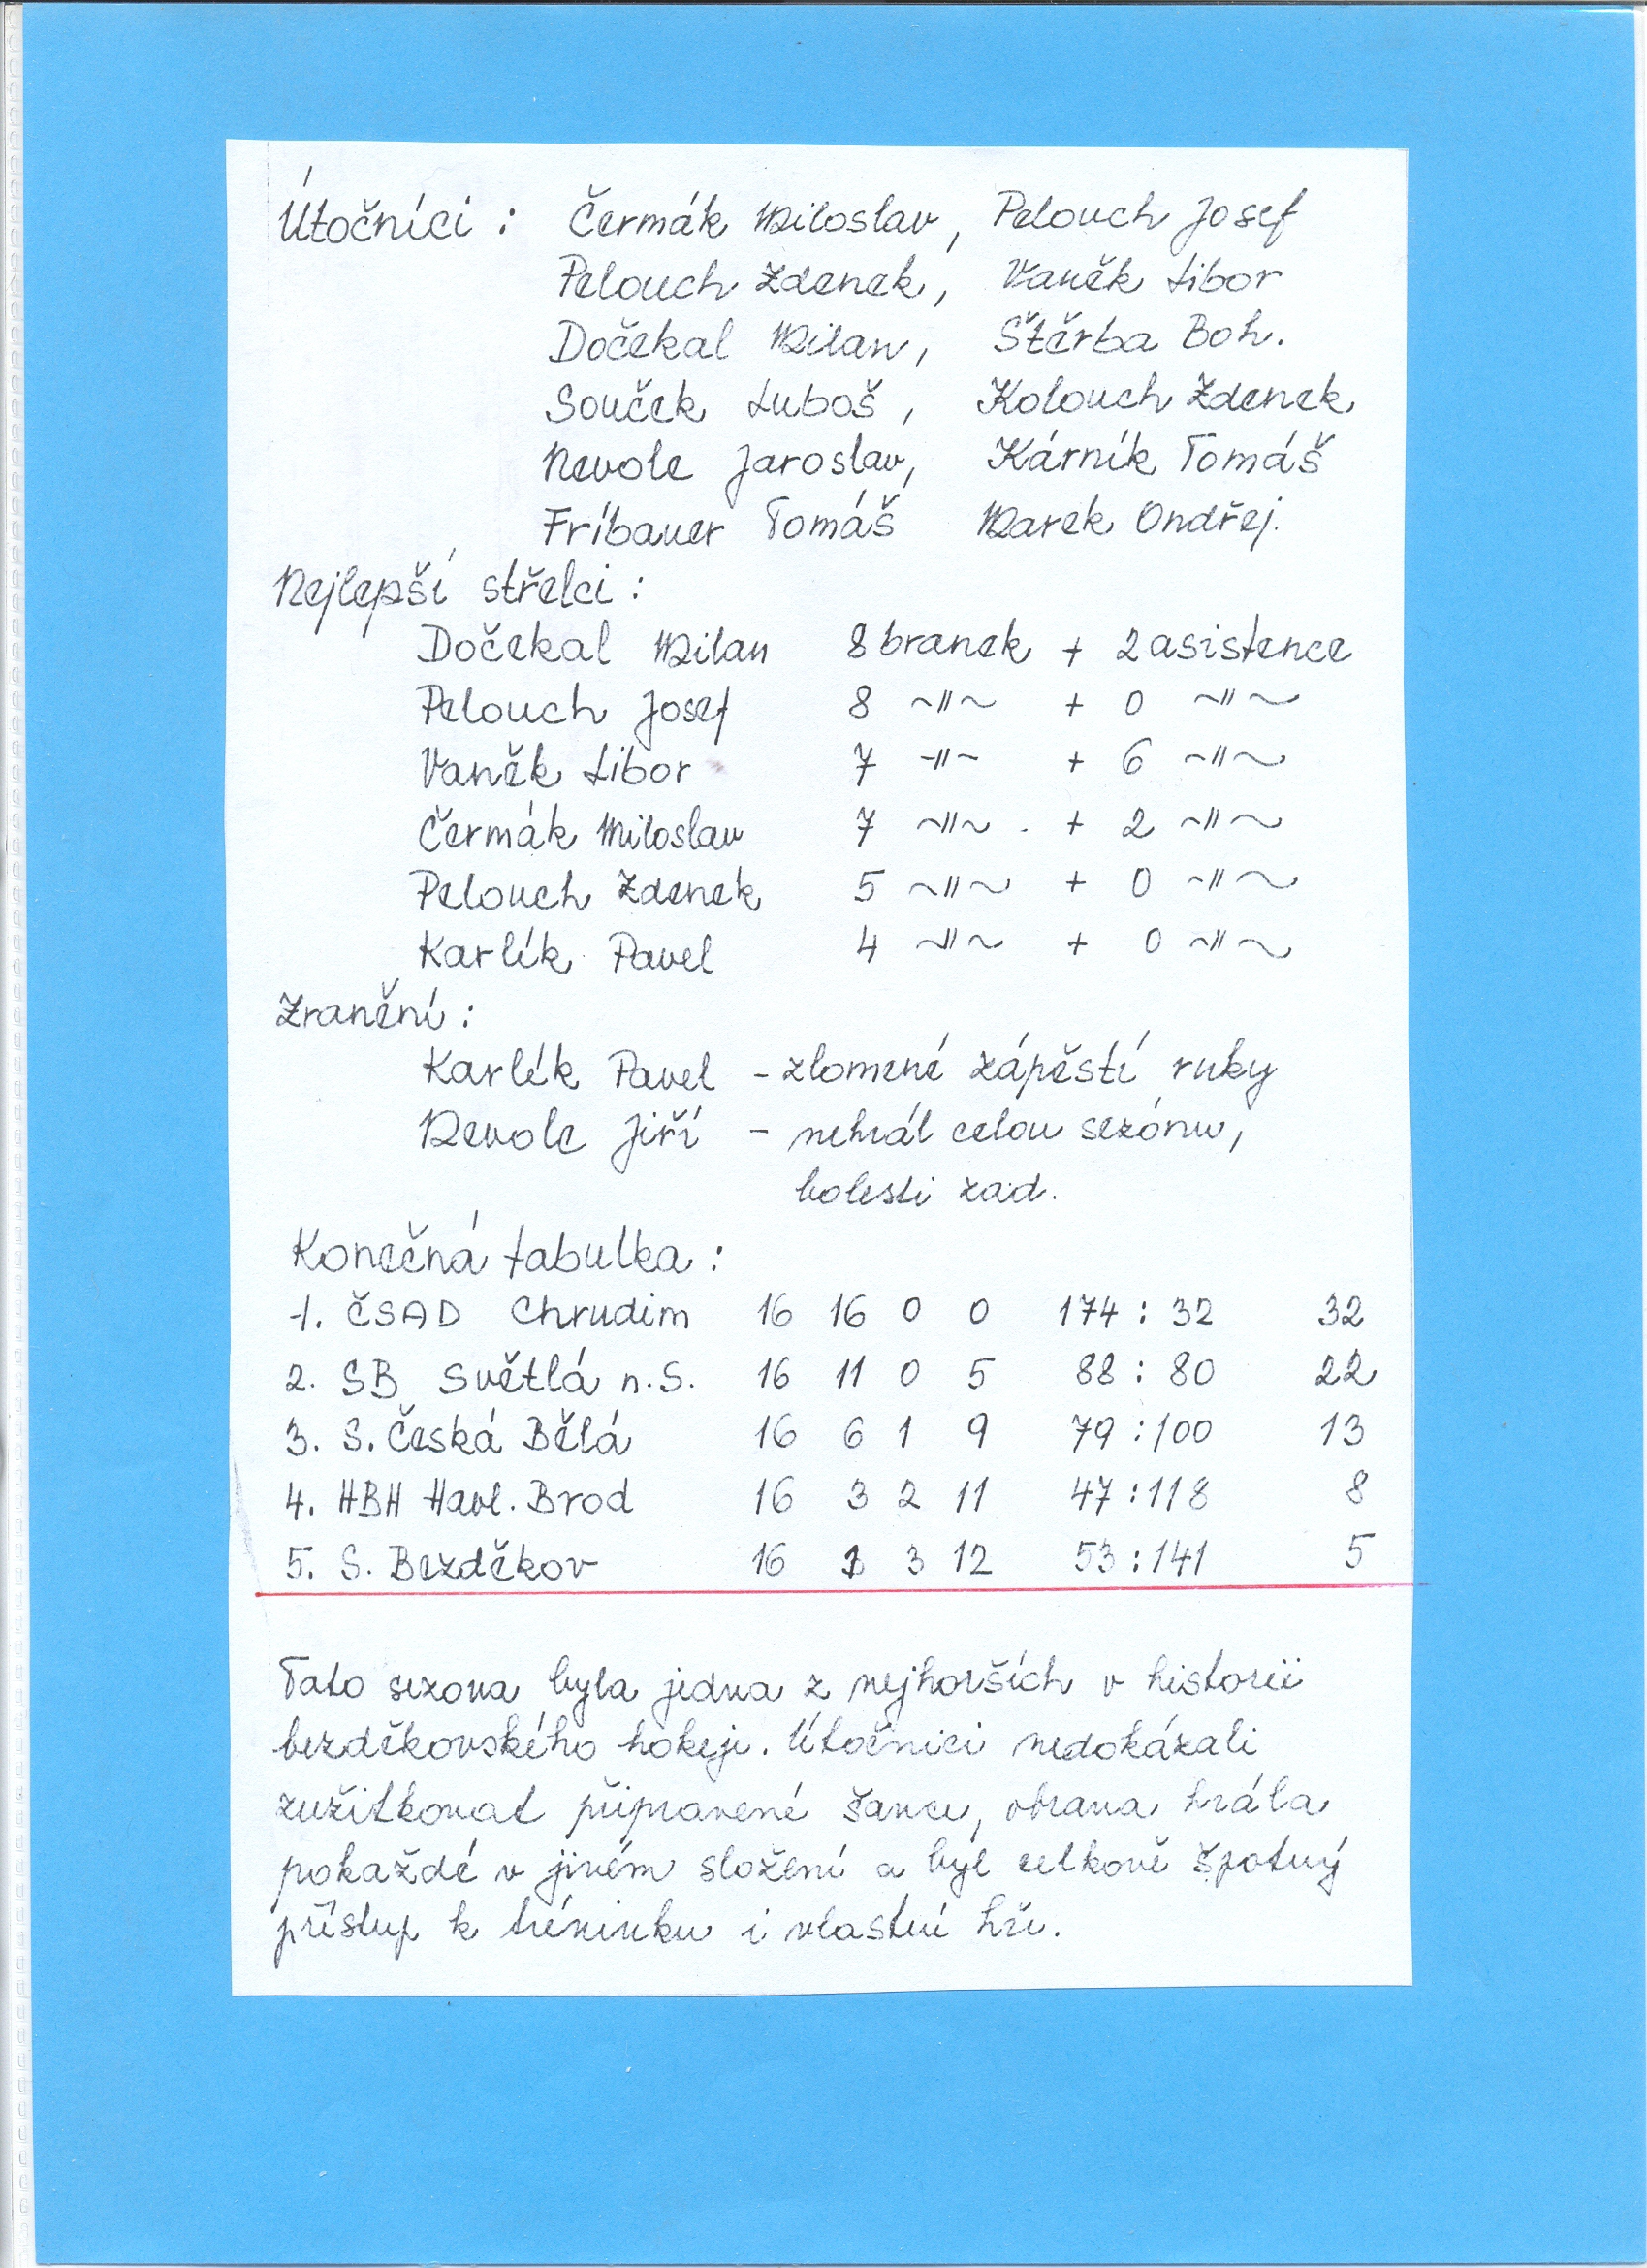 Útočníci : Čermák Miloslav, Pelouch Josef
Pelouch Zdenek, Vaněk Libor
Dočekal Milan, Štěrba Boh.
Souček Luboš, Kolouch Zdenek
Nevole Jaroslav, Kárník Tomáš
Fribauer Tomáš Marek Ondřej.
Nejlepší střelci :
Dočekal Milan 8 branek + 2 asistence
Pelouch Josef 8 ~"~ + 0 ~"~
Vaněk Libor 7 -"- + 6 ~"~
Čermák Miloslav 7 ~"~ + 2 ~"~
Pelouch Zdenek 5 ~"~ + 0 ~"~
Karlík Pavel 4 ~"~ + 0 ~"~
Zranění :
Karlík Pavel - zlomené zápěstí ruky
Nevole Jiří - nehrál celou sezónu,
bolesti zad.
Konečná tabulka :
1. ČSAD Chrudim 16 16 0 0 174 : 32 32
2. SB Světlá n.S. 16 11 0 5 88 : 80 22
3. S. Česká Bělá 16 6 1 9 79 : 100 13
4. HBH Havl. Brod 16 3 2 11 47 : 118 8
5. S. Bezděkov 16 1 3 12 53 : 141 5
Tato sezona byla jedna z nejhorších v historii
bezděkovského hokeje. Útočnici nedokázali
zužitkovat připravené šance, obrana hrála
pokaždé v jiném složení a byl celkově špatný
přístup k tréninku i vlastní hře.